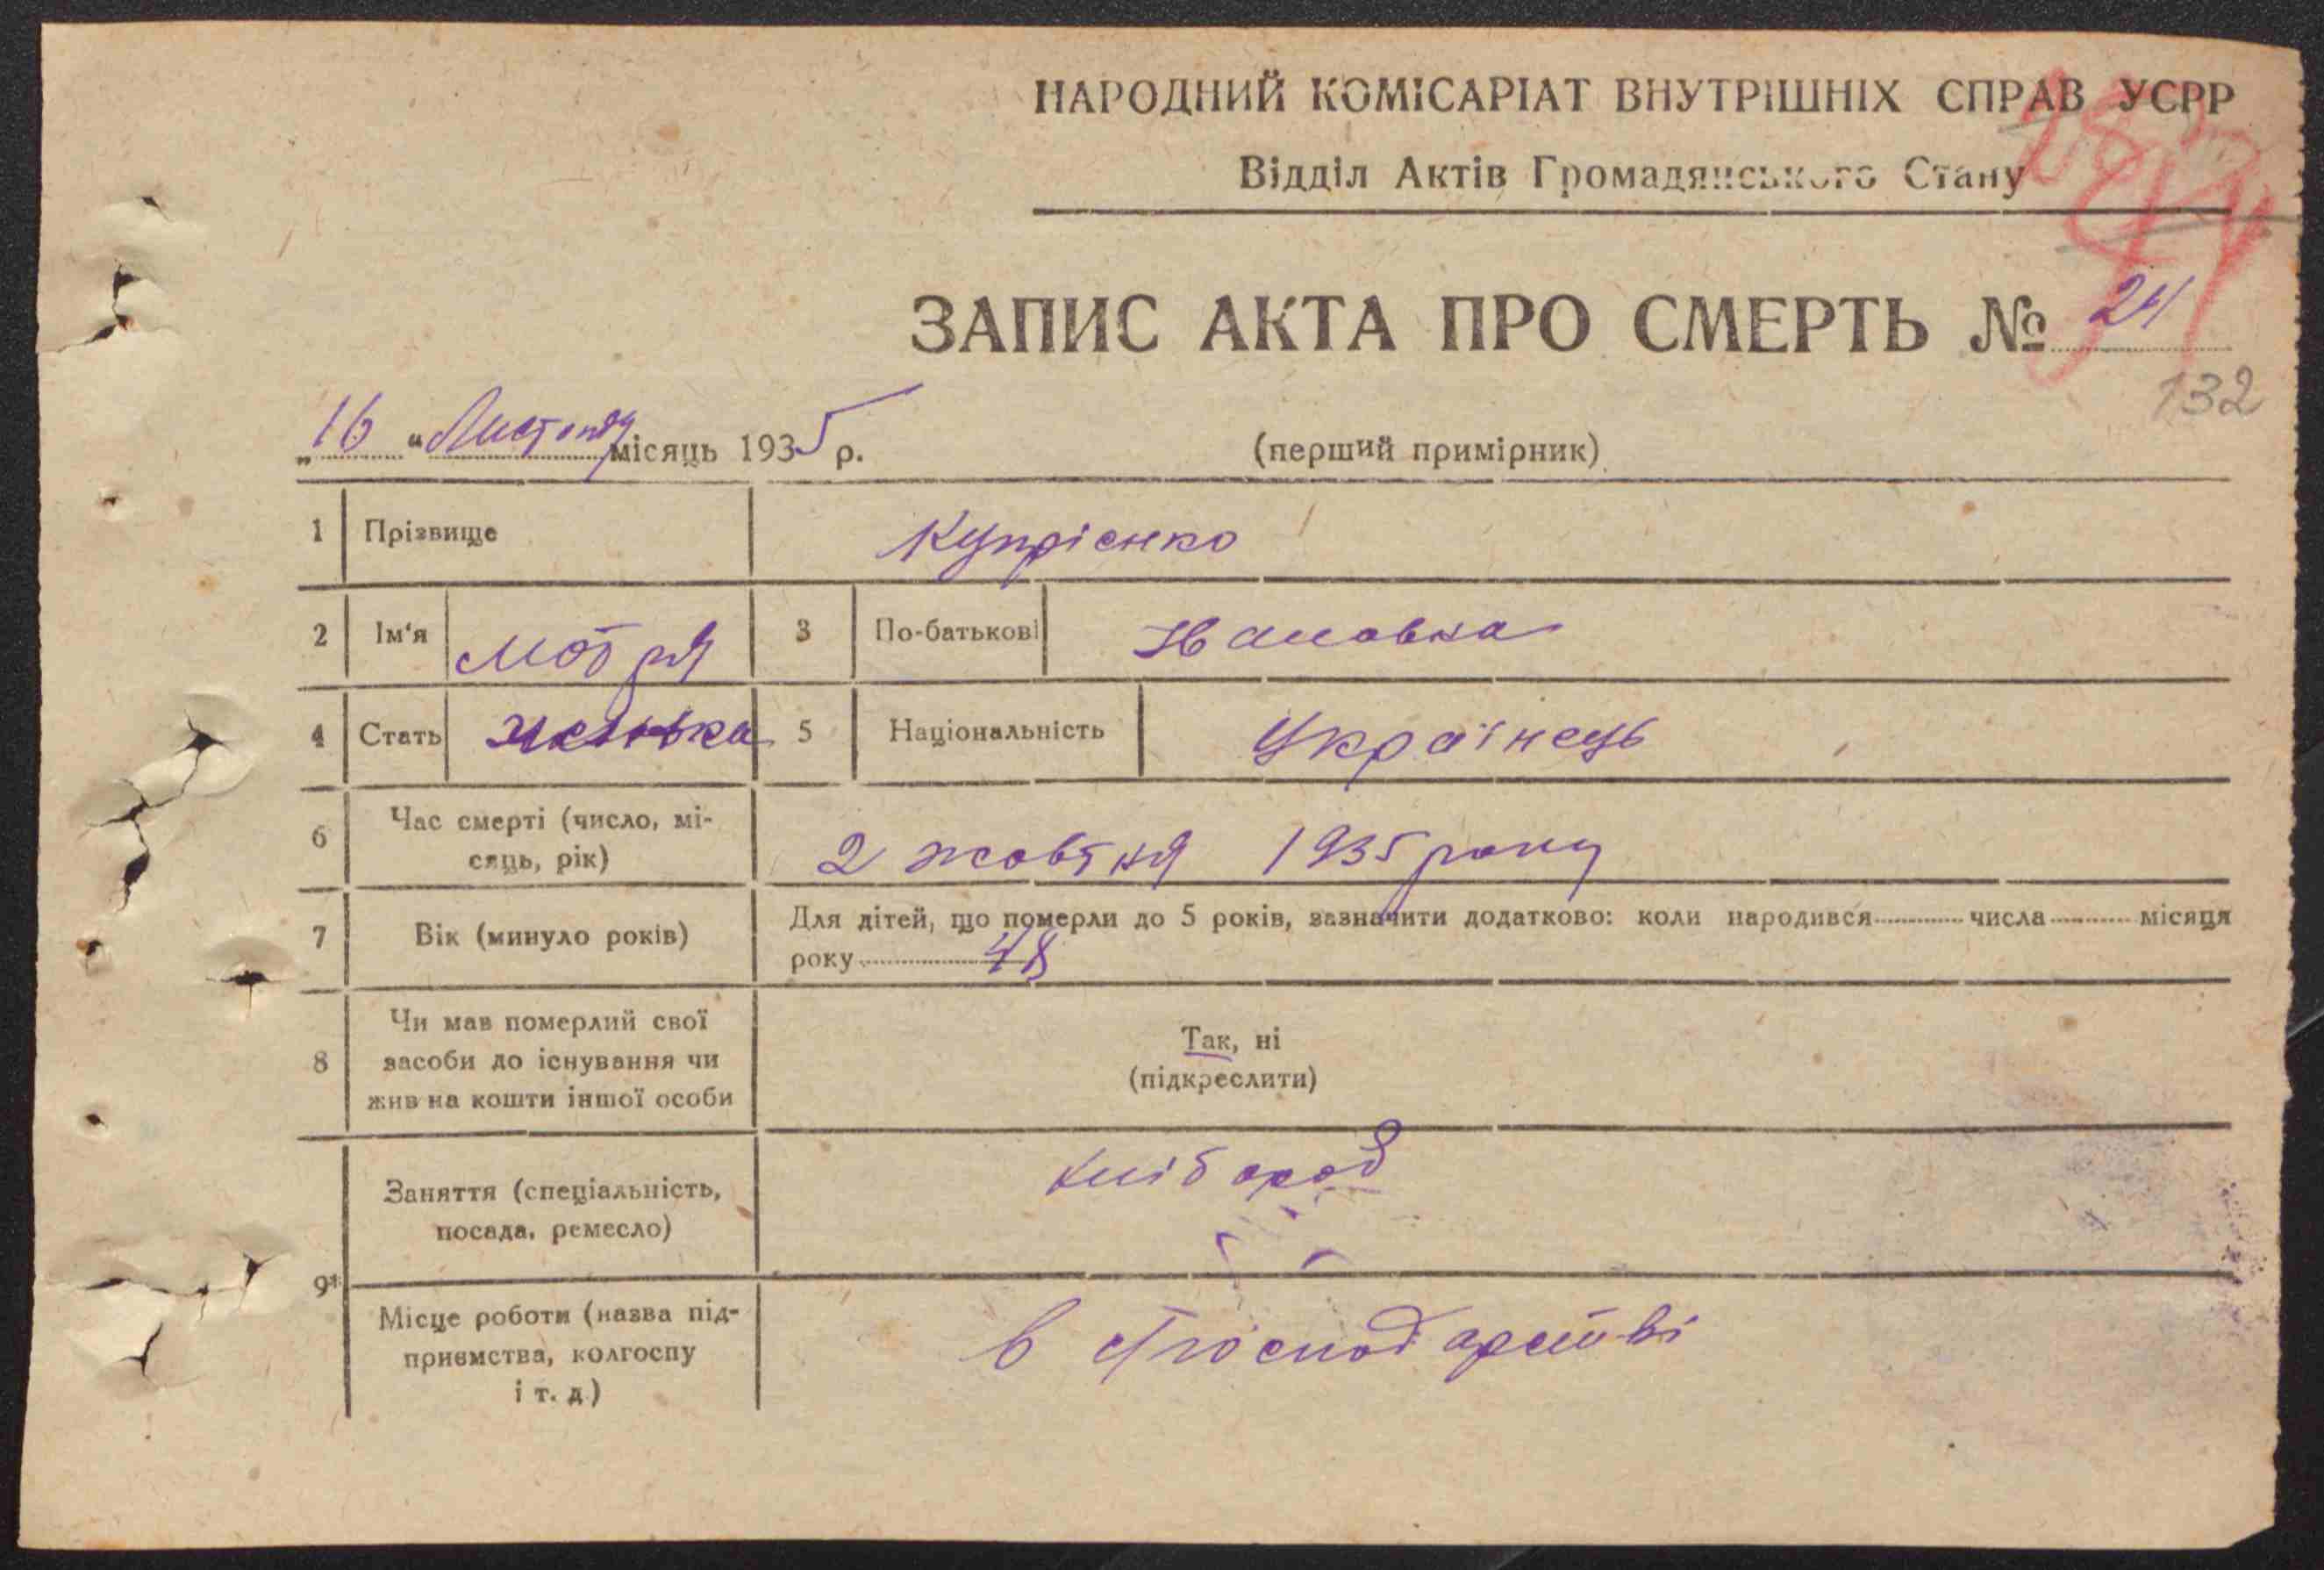 НАРОДНИЙ КОМІСАРІАТ ВНУТРІШНІХ СПРАВ УСРР
Відділ Актів Громадянського Стану
ЗАПИС АКТА ПРО СМЕРТЬ № 24
132
„16“ Листопад місяць 1935 р. (перший примірник)
1 Прізвище Купрієнко
2 Ім'я Мотря 3 По-батькові Івановна
4 Стать жінка 5 Національність Українець
6 Час смерті (число, мі-
сяць, рік) 2 жовтня 1935 року
7 Вік (минуло років) Для дітей, що померли до 5 років, зазначити додатково: коли народився числа місяця
року 48
8 Чи мав померлий свої
засоби до існування чи
жив на кошти іншої особи
Так, ні
(підкреслити)
9* Заняття (спеціальність,
посада, ремесло) хлібороб
Місце роботи (назва під-
приємства, колгоспу
і т. д)
в господарстві